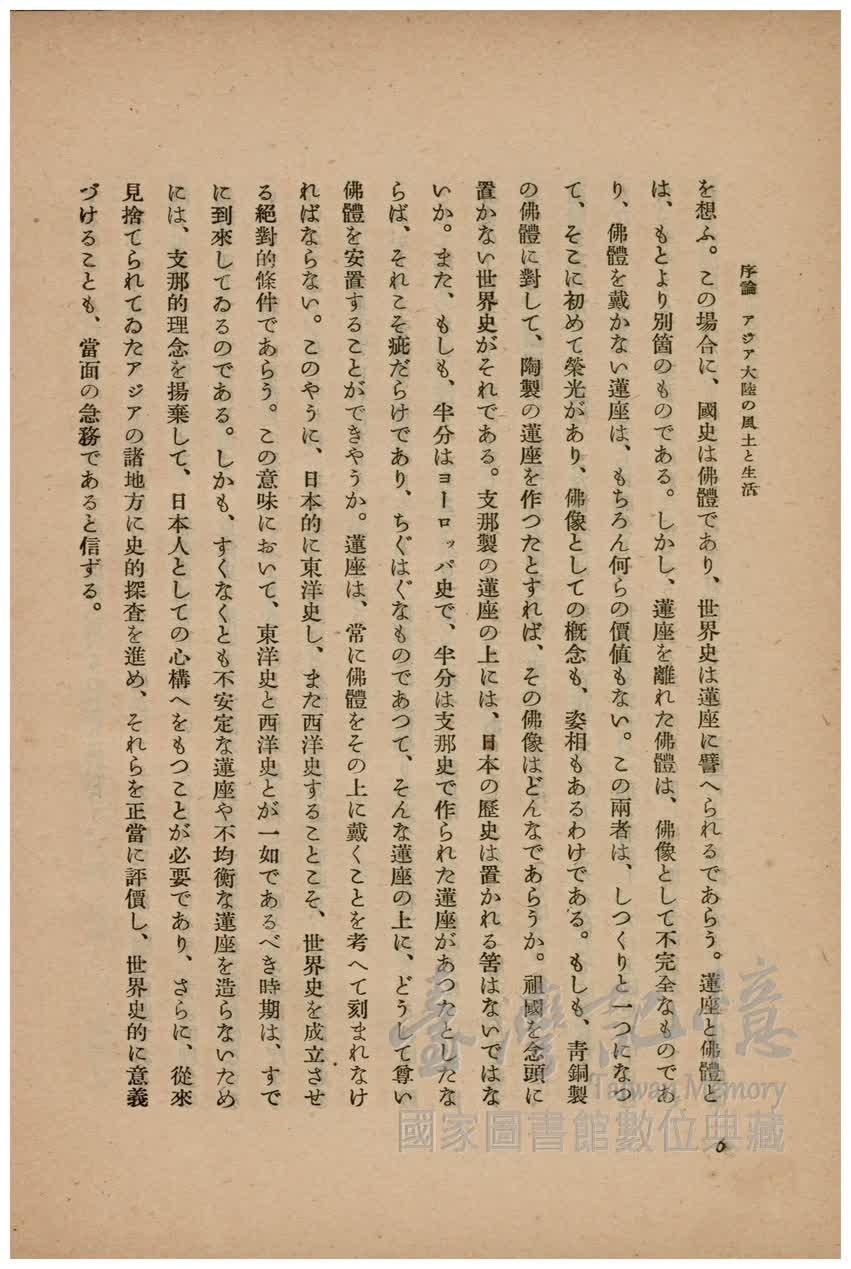 序論 アジア大陸の風土と生活
を想ふ。この場合に、國史は佛體であり、世界史は蓮座に譬へられるであらう。蓮座と佛體と
は、もとより別箇のものである。しかし、蓮座を離れた佛體は、佛像として不完全なものであ
り、佛體を戴かない蓮座は、もちろん何らの價値もない。この兩者は、しつくりと一つになつ
て、そこに初めて榮光があり、佛像としての概念も、姿相もあるわけである。もしも、靑銅製
の佛體に對して、陶製の蓮座を作つたとすれば、その佛像はどんなであらうか。祖國を念頭に
置かない世界史がそれである。支那製の蓮座の上には、日本の歷史は置かれる筈はないではな
いか。また、もしも、半分はヨーロッパ史で、半分は支那史で作られた蓮座があつたとしたな
らば、それこそ疵だらけであり、ちぐはぐなものであつて、そんな蓮座の上に、どうして尊い
佛體を安置することができやうか。蓮座は、常に佛體をその上に戴くことを考へて刻まれなけ
ればならない。このやうに、日本的に東洋史し、また西洋史することこそ、世界史を成立させ
る絕對的條件であらう。この意味において、東洋史と西洋史とが一如であるべき時期は、すで
に到來してゐるのである。しかも、すくなくとも不安定な蓮座や不均衡な蓮座を造らないため
には、支那的理念を揚棄して、日本人としての心構へをもつことが必要であり、さらに、從來
見捨てられてゐたアジアの諸地方に史的探査を進め、それらを正當に評價し、世界史的に意義
づけることも、當面の急務であると信ずる。
6
臺灣記憶
Taiwan Memory
國家圖書館數位典藏